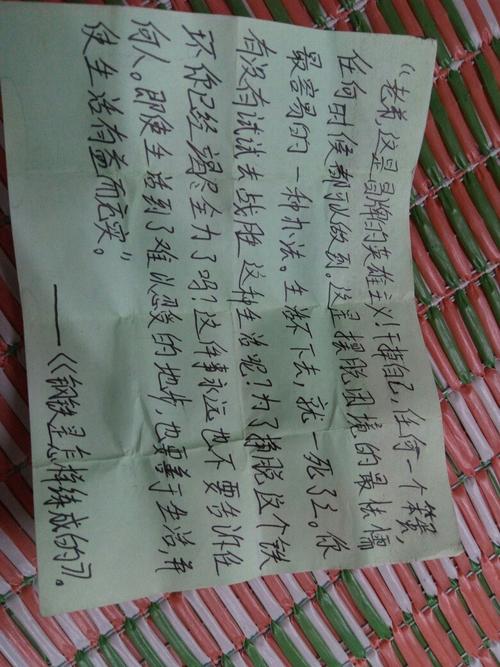 “老弟,这是冒牌的英雄主义!干掉自己,任何一个笨蛋,
任何时候都可以做到。这是摆脱困境的最怯懦
最容易的一种办法。生活不下去,就一死了之。你
有没有试试去战胜这种生活呢?为了摘脱这个铁
环,你已经竭尽全力了吗?这件事永远也不要告诉任
何人。即使生活到了难以忍受的地步,也要善于生活,并
使生活有益而充实。”
——《钢铁是怎样练成的》。